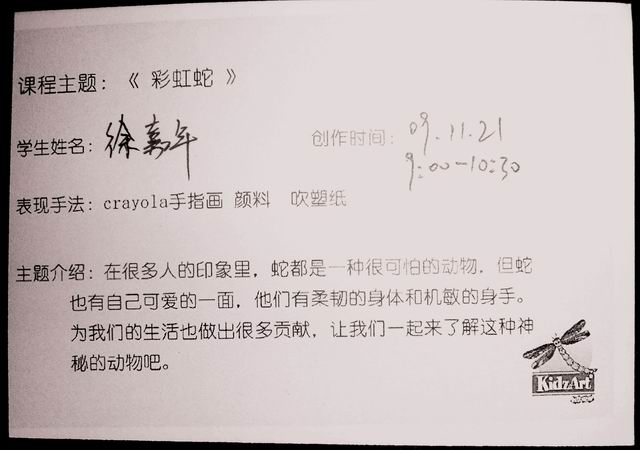 课程主题：《 彩虹蛇 》
学生姓名：徐嘉年 创作时间：09.11.21
9:00-10:30
表现手法：crayola手指画 颜料 吹塑纸
主题介绍：在很多人的印象里，蛇都是一种很可怕的动物，但蛇
也有自己可爱的一面，他们有柔韧的身体和机敏的身手。
为我们的生活也做出很多贡献，让我们一起来了解这种神
秘的动物吧。
KidzArt